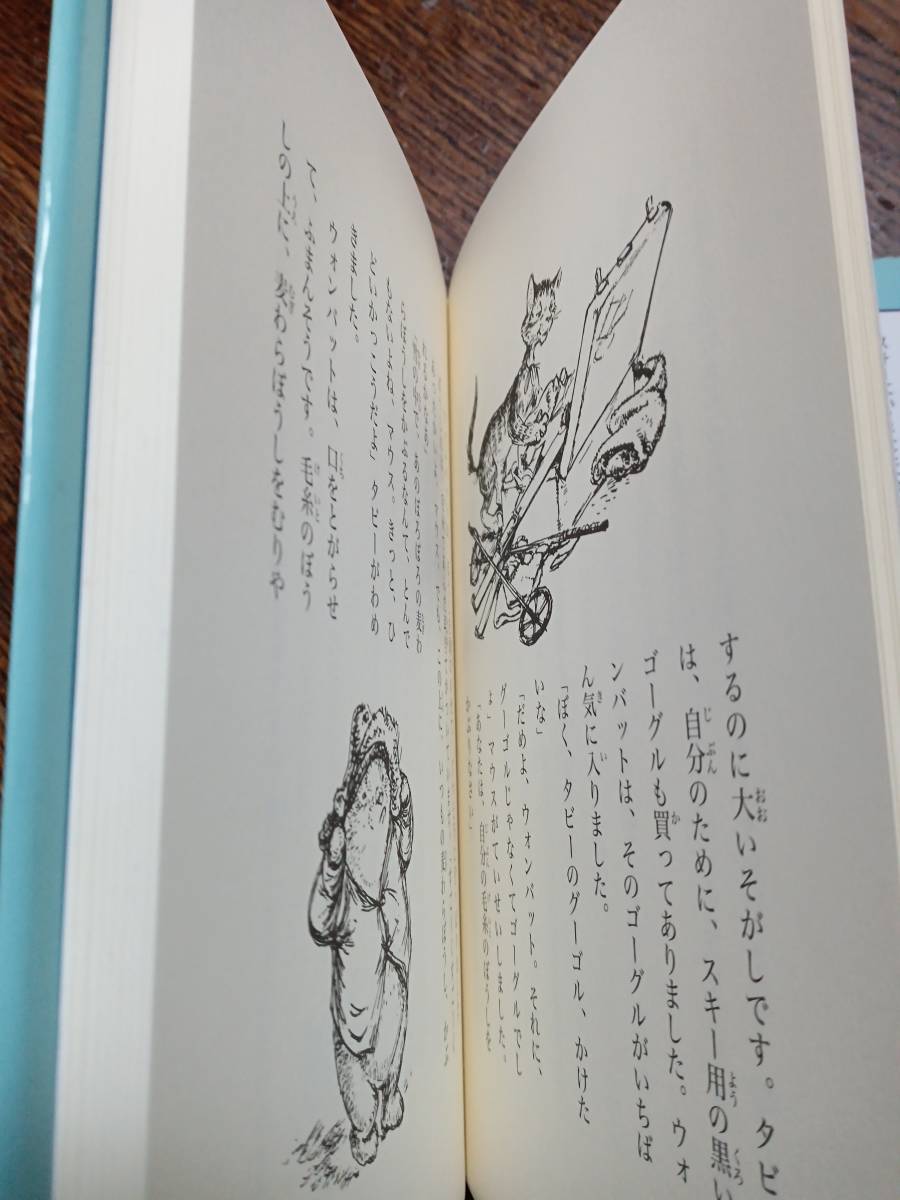 するのに大いそがしです。タビ
は、自分のために、スキー用の黒い
ゴーグルも買ってありました。ウォ
ンバットは、そのゴーグルがいちば
ん気に入りました。
「ぼく、タビーのグーゴル、かけた
いな」
「だめよ、ウォンバット。それに、
グーゴルじゃなくてゴーグルでし
よ」マウスがていせいしました。
「あなたは、自分の毛糸のぼうしを
かぶりなさい」
もないよね、マウス。きっと、ひ
どいかっこうだよ」タビーがわめ
きました。
ウォンバットは、口をとがらせ
て、ふまんそうです。毛糸のぼう
しの上に、麦わらぼうしをむりや